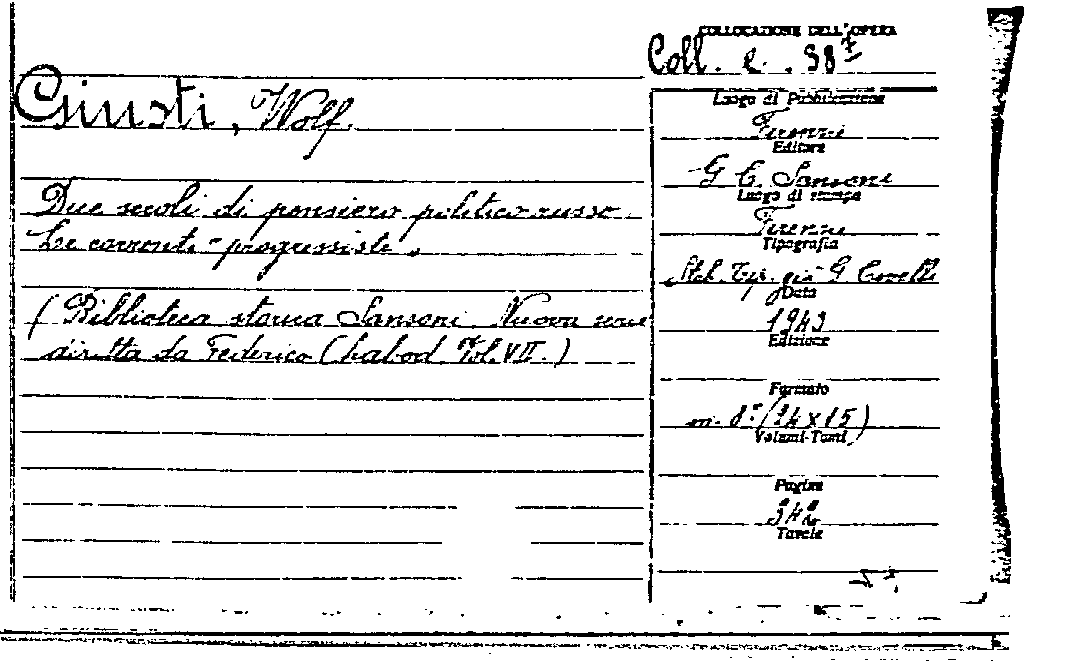 COLLOCAZIONE DELL'OPERA
Coll. e. 38 7
Giusti, Wolf.
Due secoli di pensiero politico russo.
Le correnti "progressiste".
(Biblioteca storica Sansoni. Nuova serie
diretta da Federico Chabod Vol. VII.)
Luogo di Pubblicazione
Firenze
Editore
G C. Sansoni
Luogo di stampa
Firenze
Tipografia
Stab. Tip. già G. Civelli
Data
1943
Edizione
Formato
m. 8° (24x15)
Volumi-Tomi
Pagine
Tavole